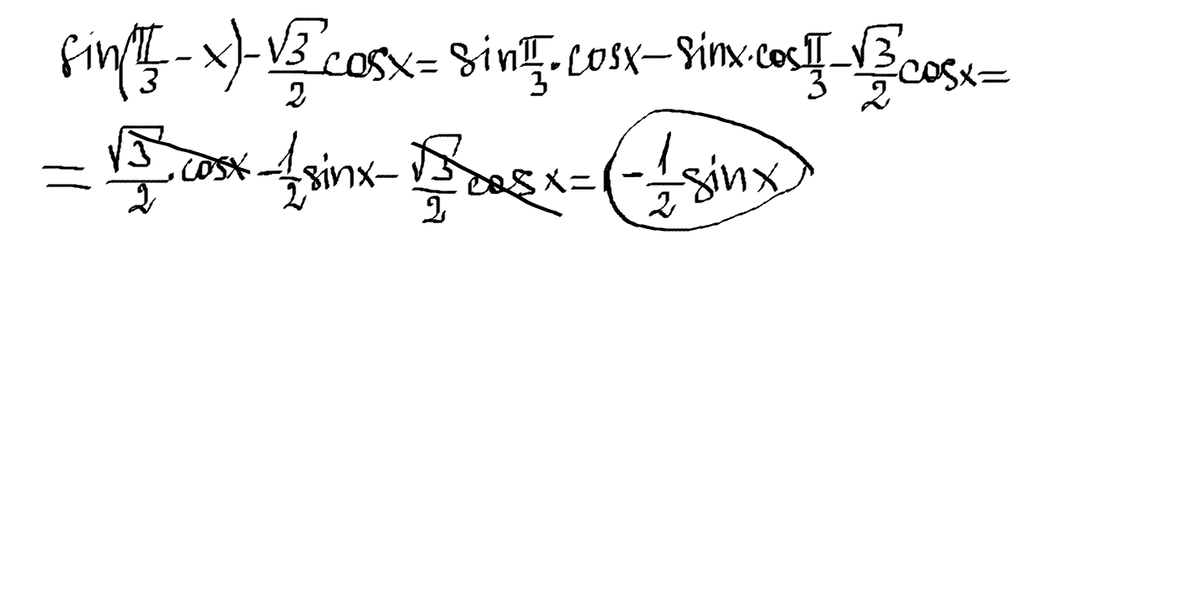 sin(π/3 - x) - √3/2 cosx = sin π/3 · cosx - sinx · cos π/3 - √3/2 cosx =
= √3/2 · cosx - 1/2 sinx - √3/2 cosx = -1/2 sinx